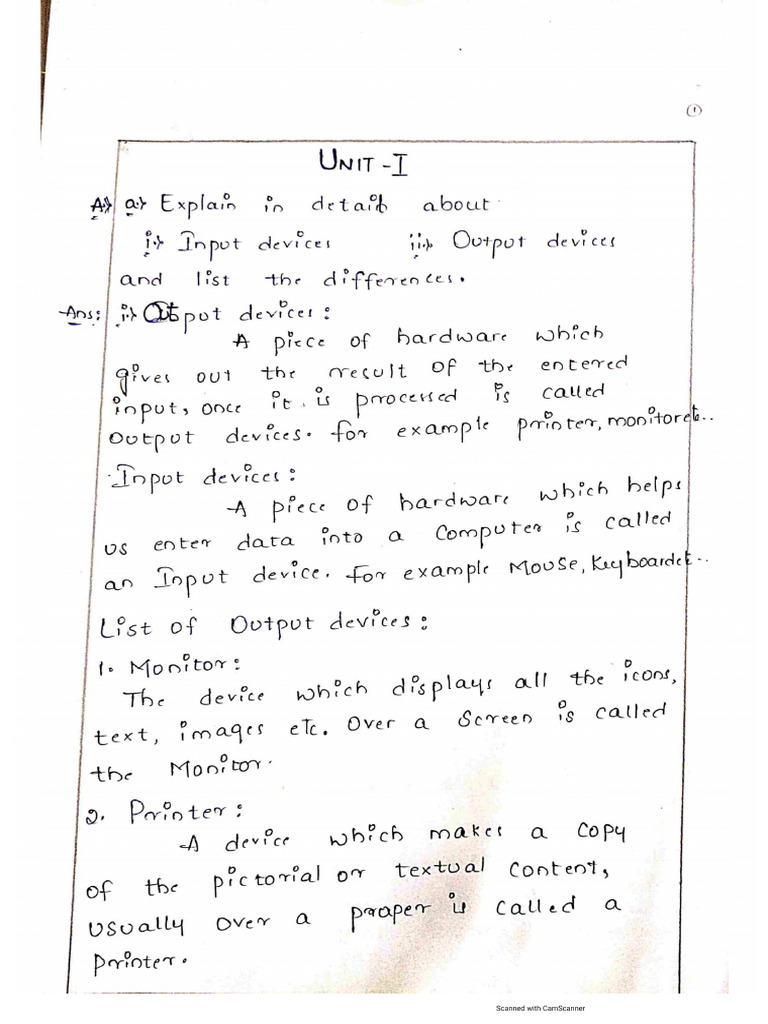 1
UNIT - I
A) a) Explain in detail about
i) Input devices ii) Output devices
and list the differences.
Ans: i) Output devices:
A piece of hardware which
gives out the result of the entered
input, once it is processed is called
output devices. for example printer, monitor etc..
Input devices:
A piece of hardware which helps
us enter data into a computer is called
an Input device. for example Mouse, Keyboard etc..
List of Output devices:
1. Monitor:
The device which displays all the icons,
text, images etc. Over a Screen is called
the Monitor.
2. Printer:
A device which makes a copy
of the pictorial or textual content,
usually over a praper is called a
printer.
Scanned with CamScanner